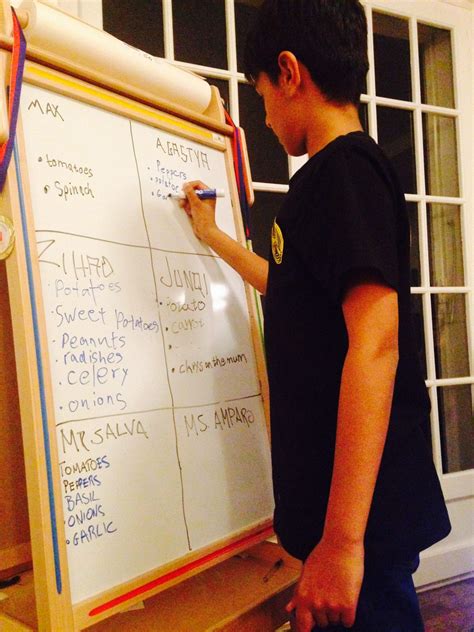 MAX
• tomatoes
• Spinech
AGASTYA
• Peppers
• potatoes
ZIHAO
• Potatoes
• Sweet Potatoes
• Peanuts
• radishes
• celery
• onions
JUNQI
potato
carrot
• chrysanthemum
MR. SALVA
TOMATOES
PEPPERS
BASIL
• ONIONS
• GARLIC
MS. AMPARO